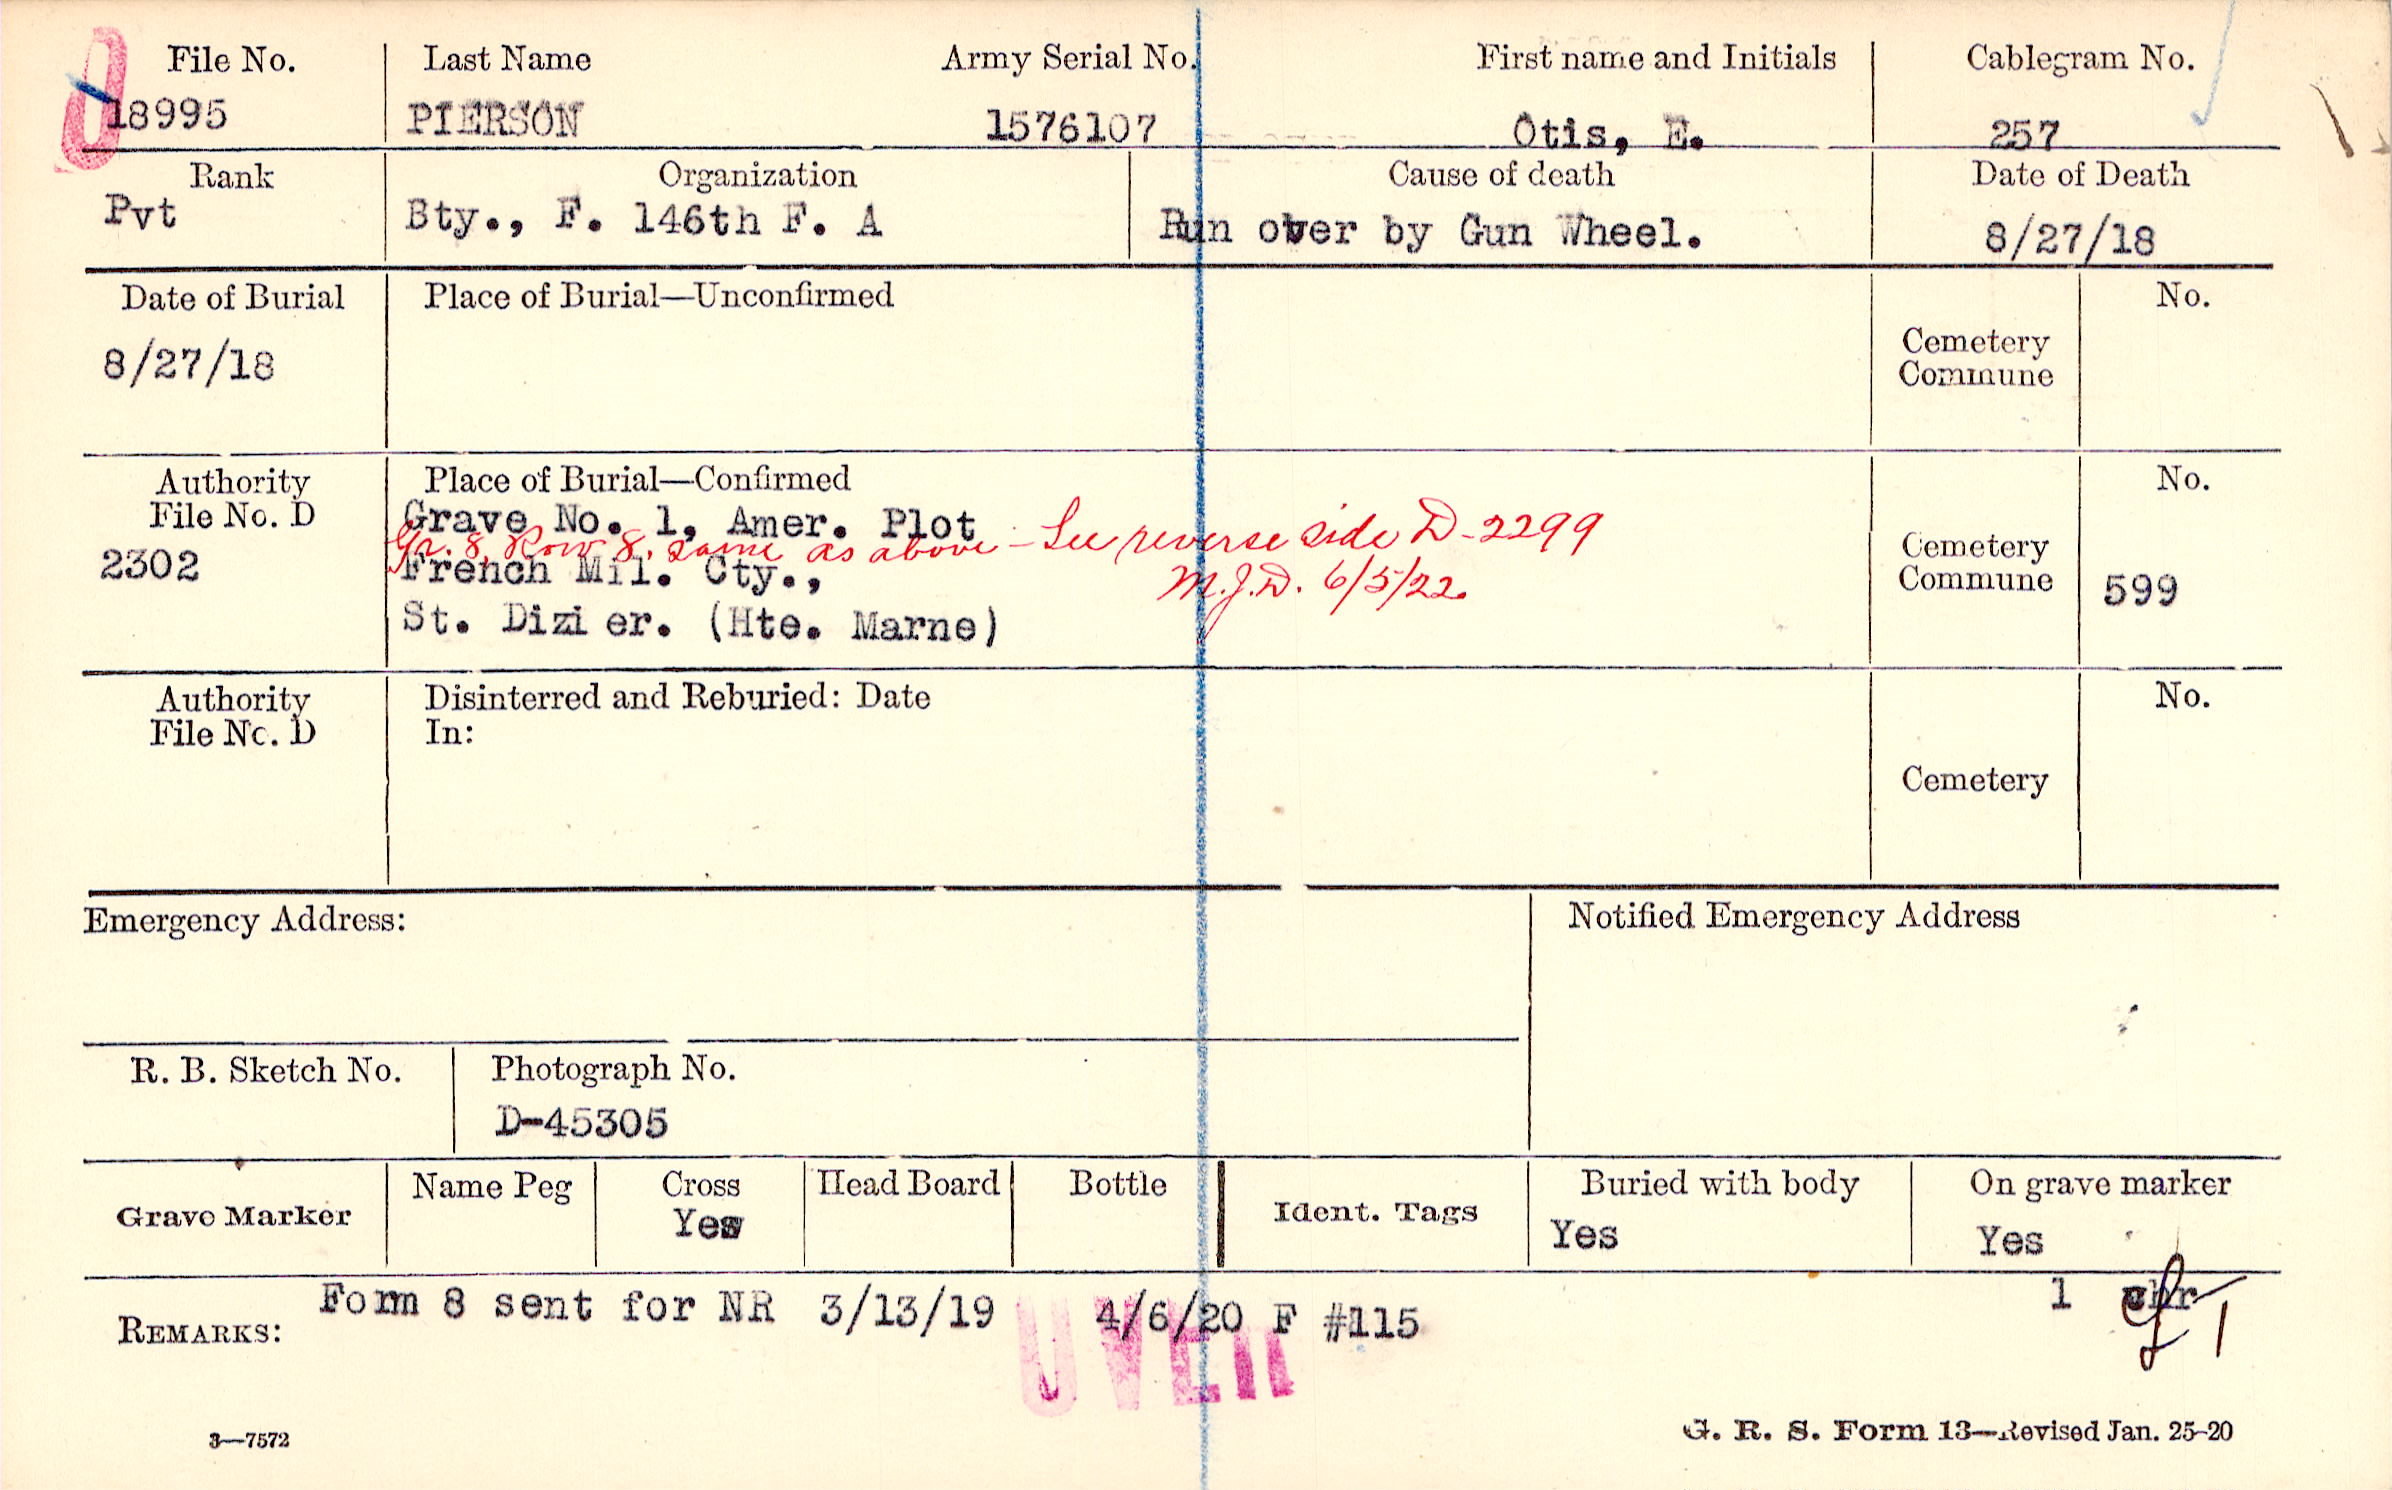 File No. Last Name Army Serial No. First name and Initials Cablegram No.
18995 PIERSON 1576107 Otis, E. 257
Rank Organization Cause of death Date of Death
Pvt Bty., F. 146th F. A Run over by Gun Wheel. 8/27/18
Date of Burial Place of Burial—Unconfirmed No.
8/27/18
Cemetery
Commune
Authority Place of Burial—Confirmed No.
File No. D
2302
Grave No. 1, Amer. Plot
Gr. 8, Row 8, same as above - See reverse side D-2299
French Mil. Cty.,
M.J.D. 6/5/22.
St. Dizier. (Hte. Marne)
Cemetery
Commune 599
Authority Disinterred and Reburied: Date No.
File No. D In:
Cemetery
Emergency Address: Notified Emergency Address
R. B. Sketch No. Photograph No.
D-45305
Grave Marker Name Peg Cross Head Board Bottle Ident. Tags Buried with body On grave marker
Yes Yes Yes
REMARKS: Form 8 sent for NR 3/13/19 4/6/20 F #115 1
OVER
3—7572 G. R. S. Form 13—Revised Jan. 25-20